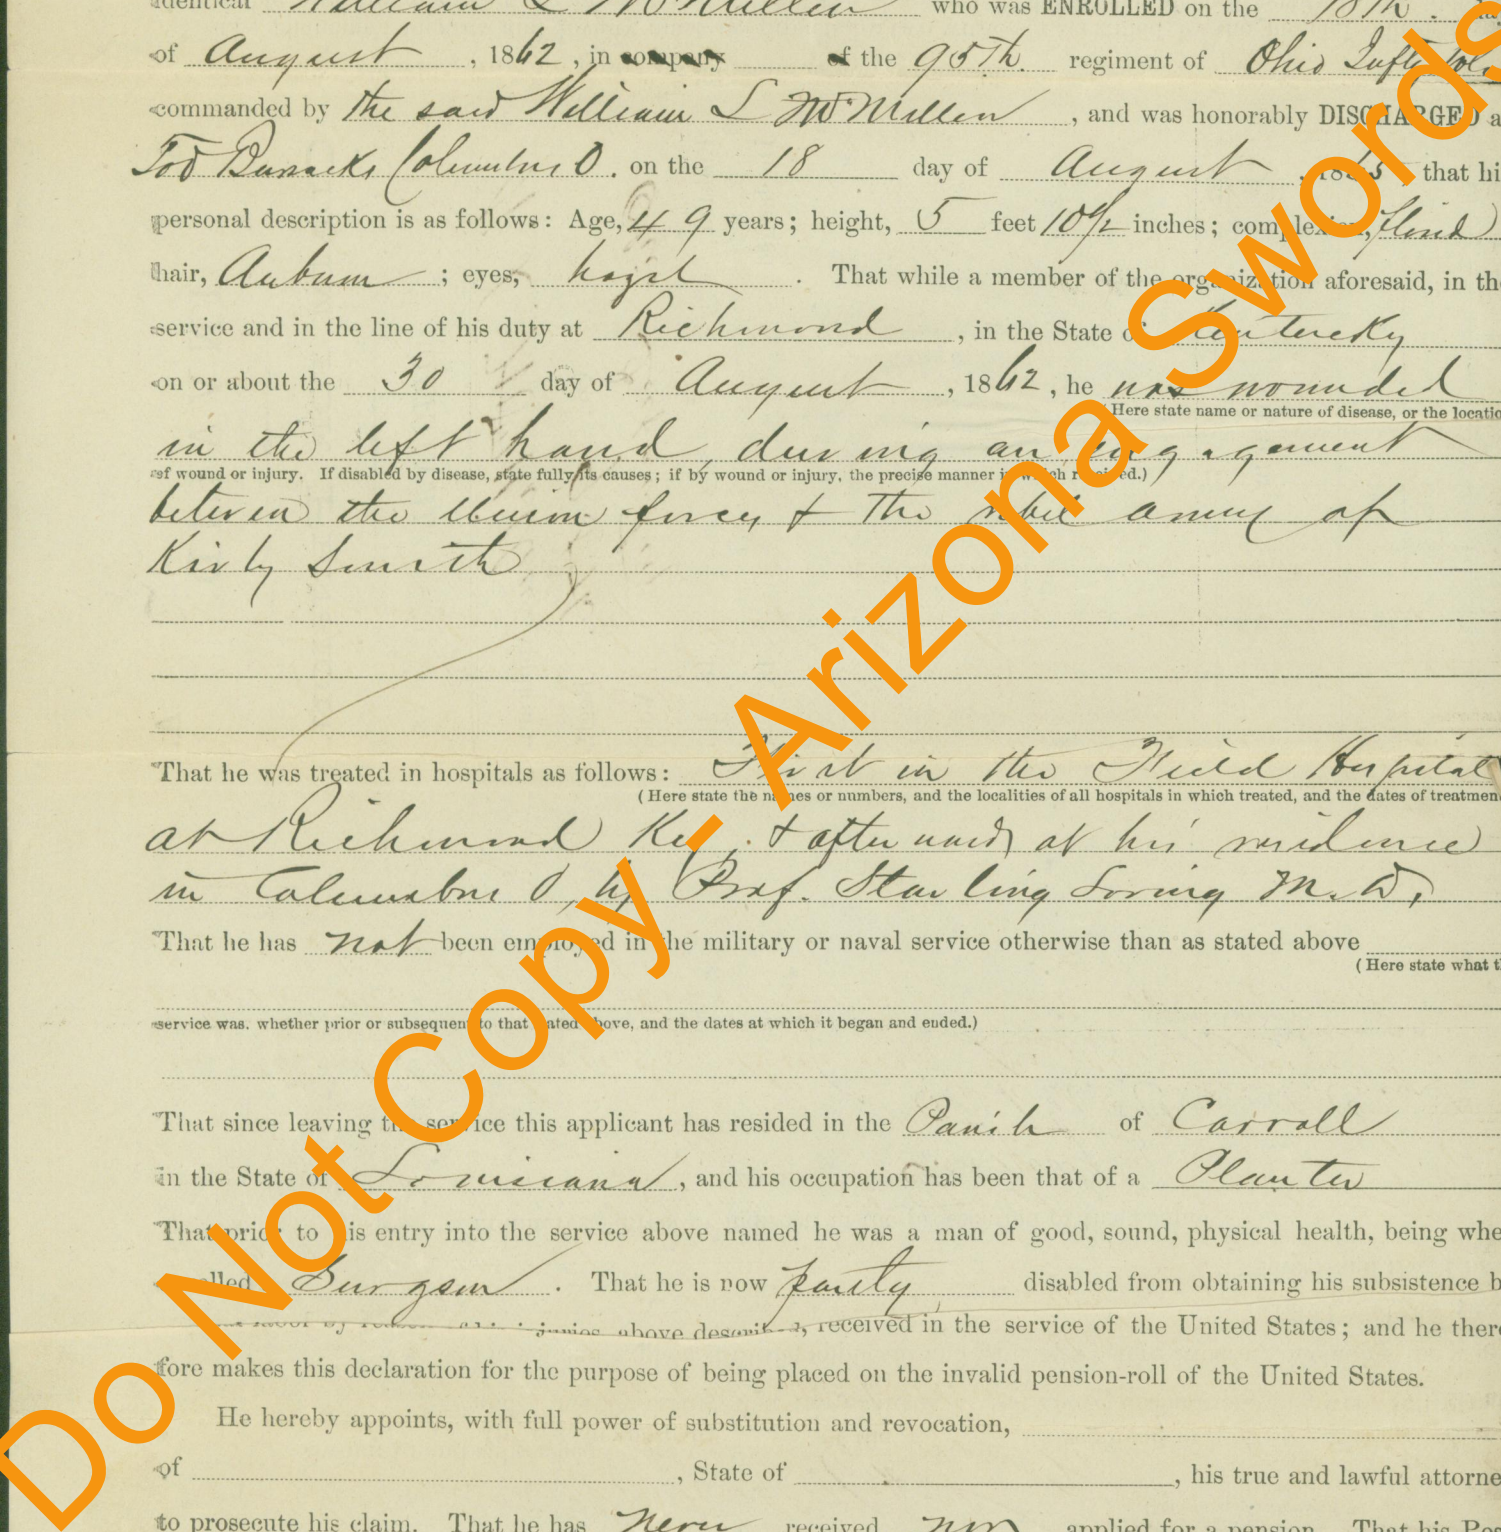 identical William L McMillen who was ENROLLED on the 18th.
of August, 1862, in company of the 95th. regiment of Ohio Infty Vol.
commanded by the said William L McMillen, and was honorably DISCHARGED a
Tod Barracks Columbus O. on the 18 day of August, 1865, that hi
personal description is as follows: Age, 49 years; height, 5 feet 10 1/2 inches; complexion, florid
hair, Auburn; eyes, hazel. That while a member of the organization aforesaid, in th
service and in the line of his duty at Richmond, in the State of Kentucky
on or about the 30 day of August, 1862, he was wounded
(Here state name or nature of disease, or the locatio
in the left hand, during an engagement
of wound or injury. If disabled by disease, state fully its causes; if by wound or injury, the precise manner in which received.)
between the Union forces & the rebel army of
Kirby Smith
That he was treated in hospitals as follows: First in the Field Hospital
(Here state the names or numbers, and the localities of all hospitals in which treated, and the dates of treatmen
at Richmond Ky. & afterwards at his residence
in Columbus O, by Prof. Starling Loving M.D.
That he has not been employed in the military or naval service otherwise than as stated above
(Here state what t
service was. whether prior or subsequent to that stated above, and the dates at which it began and ended.)
That since leaving the service this applicant has resided in the Parish of Carroll
in the State of Louisiana, and his occupation has been that of a Planter
That prior to his entry into the service above named he was a man of good, sound, physical health, being whe
enrolled a Surgeon. That he is now partly disabled from obtaining his subsistence b
labor by reason of his injuries above described, received in the service of the United States; and he there
fore makes this declaration for the purpose of being placed on the invalid pension-roll of the United States.
He hereby appoints, with full power of substitution and revocation,
of , State of , his true and lawful attorne
to prosecute his claim. That he has never received nor applied for a pension. That his Po
Do Not Copy - Arizona Swords